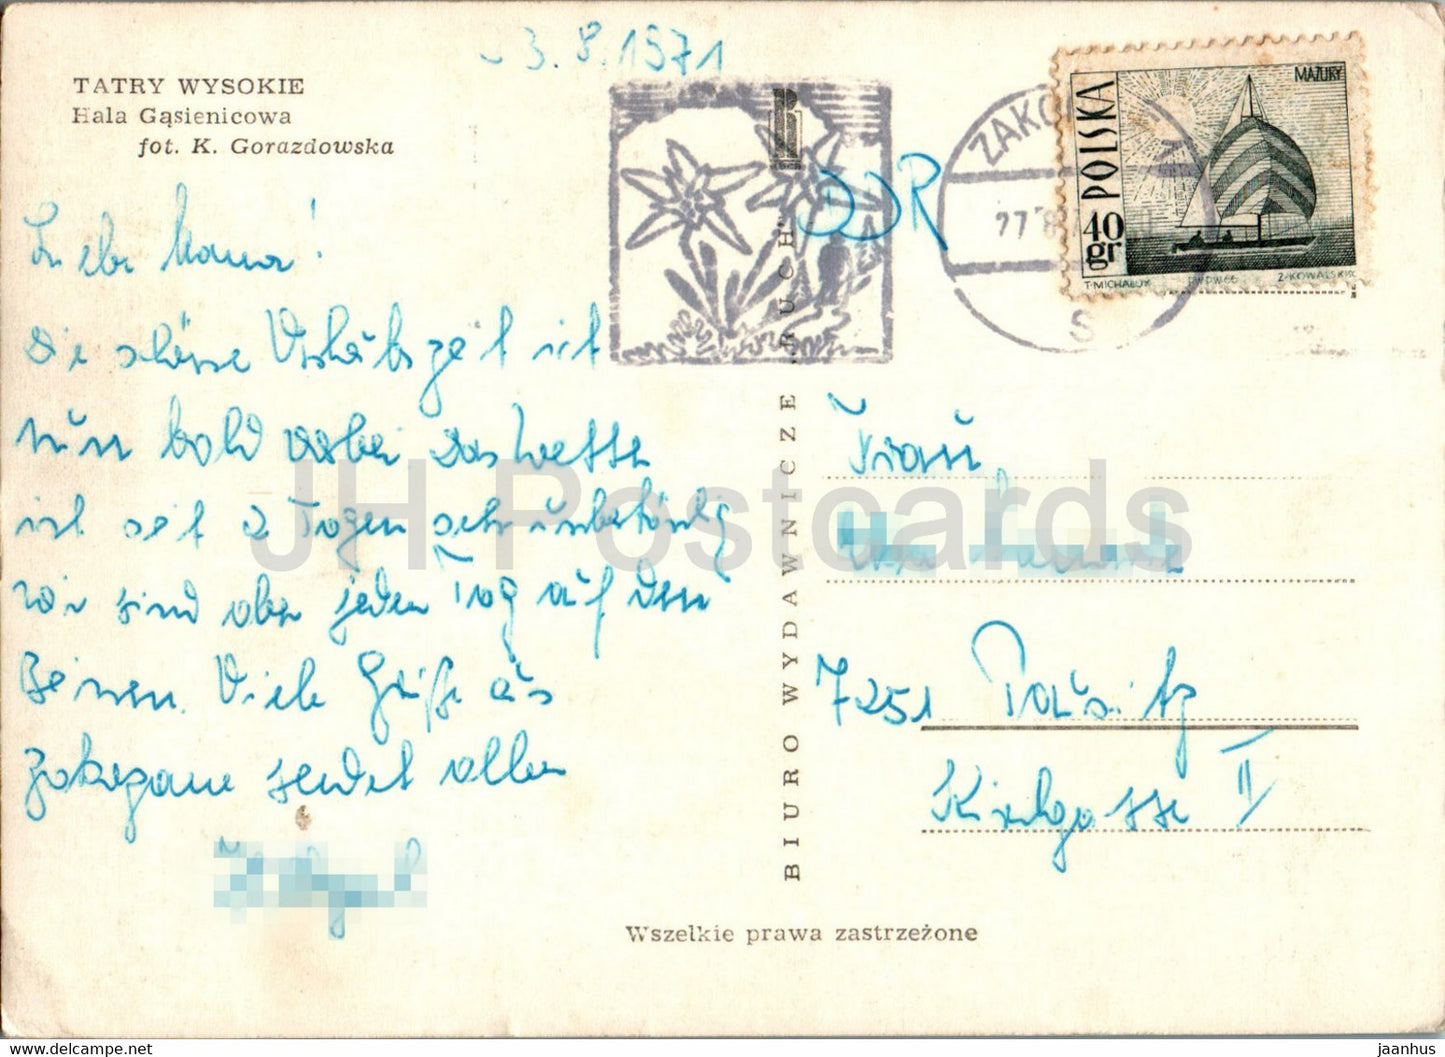 - 3.8.1971
TATRY WYSOKIE
Hala Gąsienicowa
fot. K. Gorazdowska
Liebe Mama!
Die schöne Urlaubszeit ist
nun bald vorbei das Wetter
ist seit 2 Tagen sehr unbeständig
wir sind aber jeden Tag auf den
Beinen. Viele Grüße aus
Zakopane sendet allen
BIURO WYDAWNICZE „RUCH"
DDR
ZAKOPANE
MAZURY
POLSKA
40
gr
T·MICHALUK PWPW66 Z·KOWALSKI
Frau
7251 Pausitz
Kirchgasse II
Wszelkie prawa zastrzeżone
JH Postcards
www.hippostcard.com/store/jh-postcards
jaanhus